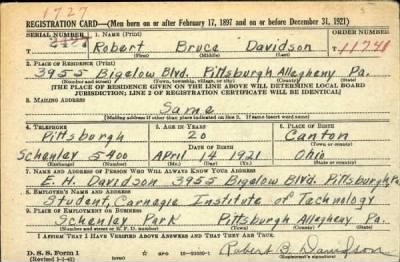 1727
REGISTRATION CARD—(Men born on or after February 17, 1897 and on or before December 31, 1921)
SERIAL NUMBER 1. NAME (Print) ORDER NUMBER
Robert Bruce Davidson 11748
(First) (Middle) (Last)
2. PLACE OF RESIDENCE (Print)
3955 Bigelow Blvd. Pittsburgh Allegheny Pa.
(Number and street) (Town, township, village, or city) (County) (State)
[THE PLACE OF RESIDENCE GIVEN ON THE LINE ABOVE WILL DETERMINE LOCAL BOARD
JURISDICTION; LINE 2 OF REGISTRATION CERTIFICATE WILL BE IDENTICAL]
3. MAILING ADDRESS
Same
(Mailing address if other than place indicated on line 2. If same insert word same)
4. TELEPHONE 5. AGE IN YEARS 6. PLACE OF BIRTH
Pittsburgh 20 Canton
DATE OF BIRTH (Town or county)
Schenley 5400 April 14 1921 Ohio
(Exchange) (Number) (Mo.) (Day) (Yr.) (State or country)
7. NAME AND ADDRESS OF PERSON WHO WILL ALWAYS KNOW YOUR ADDRESS
E. H. Davidson 3955 Bigelow Blvd. Pittsburgh, Pa.
8. EMPLOYER'S NAME AND ADDRESS
Student, Carnegie Institute of Technology
9. PLACE OF EMPLOYMENT OR BUSINESS
Schenley Park Pittsburgh Allegheny Pa.
(Number and street or R. F. D. number) (Town) (County) (State)
I AFFIRM THAT I HAVE VERIFIED ABOVE ANSWERS AND THAT THEY ARE TRUE.
D. S. S. Form 1 GPO Robert B. Davidson
(Revised 1-1-42) (Registrant's signature)